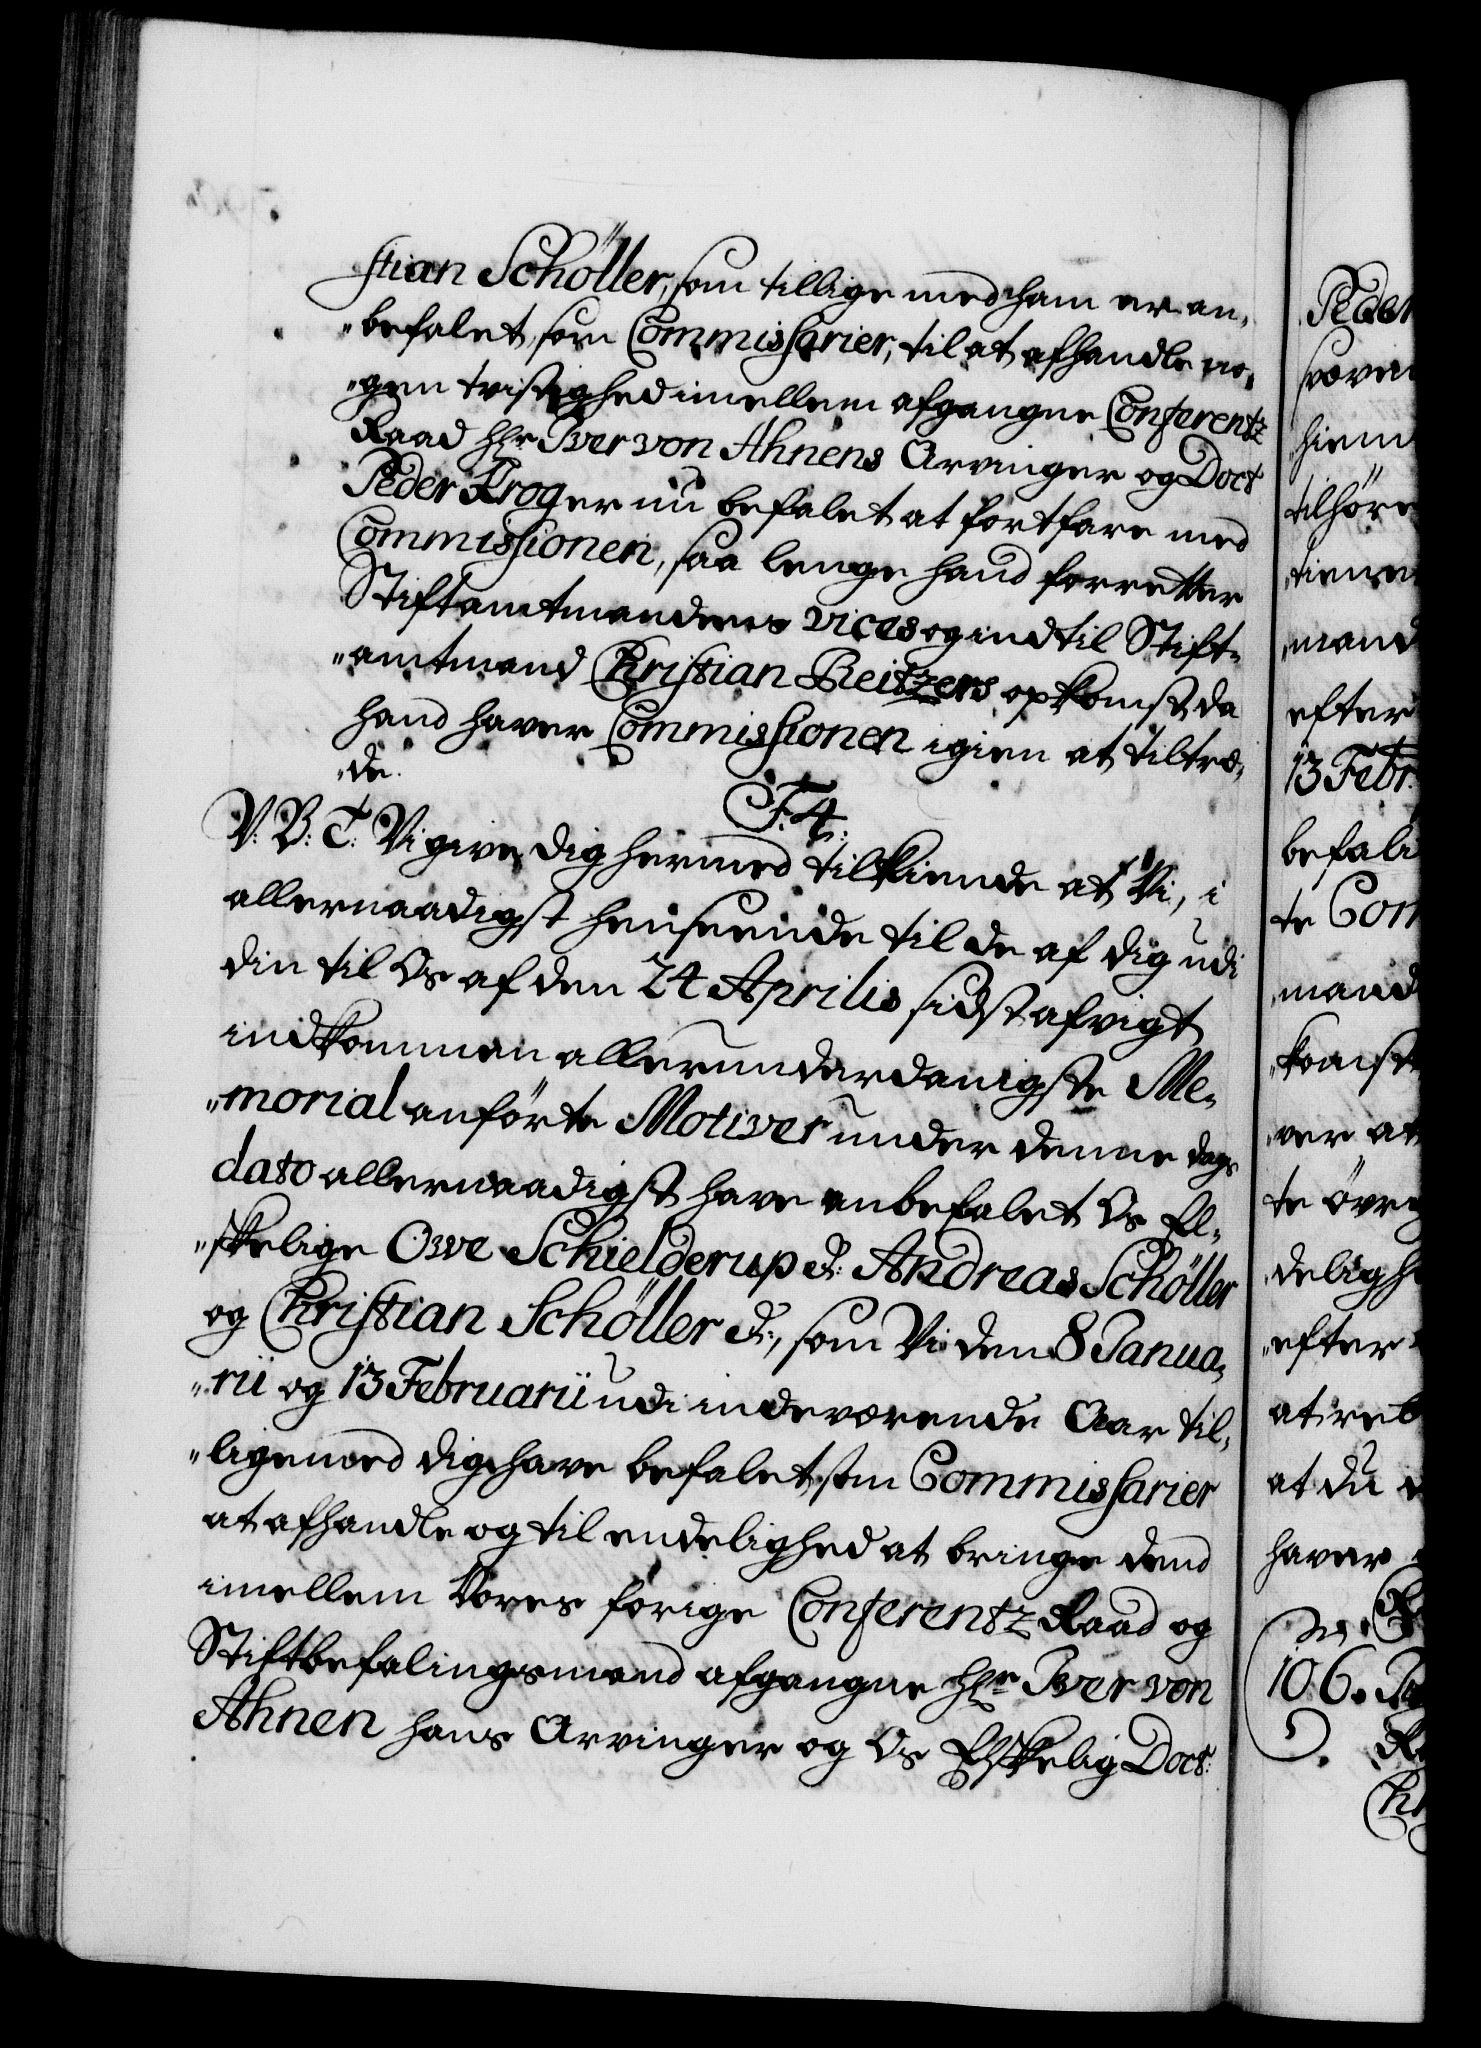 stian Schöller, som tillige med ham er an,
"befalet, som Commissarier, til at afhandle no,
"gen tvistighed imellem afgangne Conferentz
Raad Hr. Iver von Ahnens Arvinger og Doct
Peder Krog er nu befalet at fortfare med
Commissionen, saa lenge hand forretter
Stiftamtmandens vices og indtil Stift„
"amtmand Christian Reitzers opkomst, da
hand haver Commissionen igien at tiltræ,
"de.
F. 4.
V: B: T: Vi give dig hermed tilkiende at Vi, i
allernaadigst henseende til de af dig udi
din til Os af den 24 Aprilis sidst afvigt
indkommen allerunderdanigste Me„
"morial anförte Motiver under denne dags
dato allernaadigst have anbefalet Os El„
"skelige Owe Schielderup d: Andreas Schöller
og Christian Schöller d:, som Vi den 8 Janua„
"rii og 13 Februarii udi indeværende Aar til„
"ligemed dig have befalet som Commissarier
at afhandle og til endelighed at bringe dend
imellem Vores forige Conferentz Raad og
Stiftbefalingsmand afgangne Hr. Iver von
Ahnen hans Arvinger og Os Elskelig Doct:
Peder
hiem
tilhöre
tiene
mand
efter
13 Febr.
befali
te Com
mand
komst
ver at
te övrig
deligh
efter
at reb
at du
haver
106.